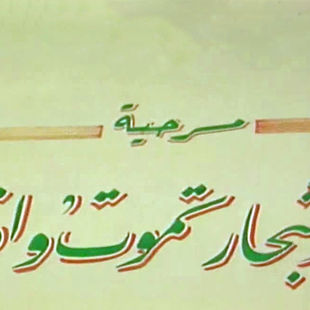 مسرحية
شجار تموت وا